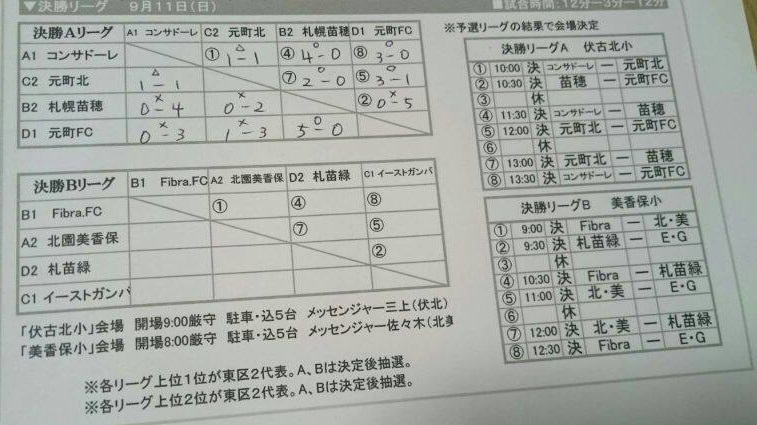 ▼決勝リーグ 9月11日(日)
■試合時間:12分ー3分ー12分
決勝Aリーグ A1 コンサドーレ C2 元町北 B2 札幌苗穂 D1 元町FC
A1 コンサドーレ ① △ 1-1 ④ ○ 4-0 ⑧ ○ 3-0
C2 元町北 △ 1-1 ⑦ ○ 2-0 ⑤ ○ 3-1
B2 札幌苗穂 × 0-4 × 0-2 ② × 0-5
D1 元町FC × 0-3 × 1-3 ○ 5-0
※予選リーグの結果で会場決定
決勝リーグA 伏古北小
① 10:00 決 コンサドーレ ー 元町北
② 10:30 決 苗穂 ー 元町FC
③ 休
④ 11:30 決 コンサドーレ ー 苗穂
⑤ 12:00 決 元町北 ー 元町FC
⑥ 休
⑦ 13:00 決 元町北 ー 苗穂
⑧ 13:30 決 コンサドーレ ー 元町FC
決勝Bリーグ B1 Fibra.FC A2 北園美香保 D2 札苗緑 C1 イーストガンバ
B1 Fibra.FC ① ④ ⑧
A2 北園美香保 ⑦ ⑤
D2 札苗緑 ②
C1 イーストガンバ
決勝リーグB 美香保小
① 9:00 決 Fibra ー 北・美
② 9:30 決 札苗緑 ー E・G
③ 休
④ 10:30 決 Fibra ー 札苗緑
⑤ 11:00 決 北・美 ー E・G
⑥ 休
⑦ 12:00 決 北・美 ー 札苗緑
⑧ 12:30 決 Fibra ー E・G
「伏古北小」会場 開場9:00厳守 駐車・込5台 メッセンジャー三上(伏北)
「美香保小」会場 開場8:00厳守 駐車・込5台 メッセンジャー佐々木(北美
※各リーグ上位1位が東区2代表。A、Bは決定後抽選。
※各リーグ上位2位が東区2代表。A、Bは決定後抽選。